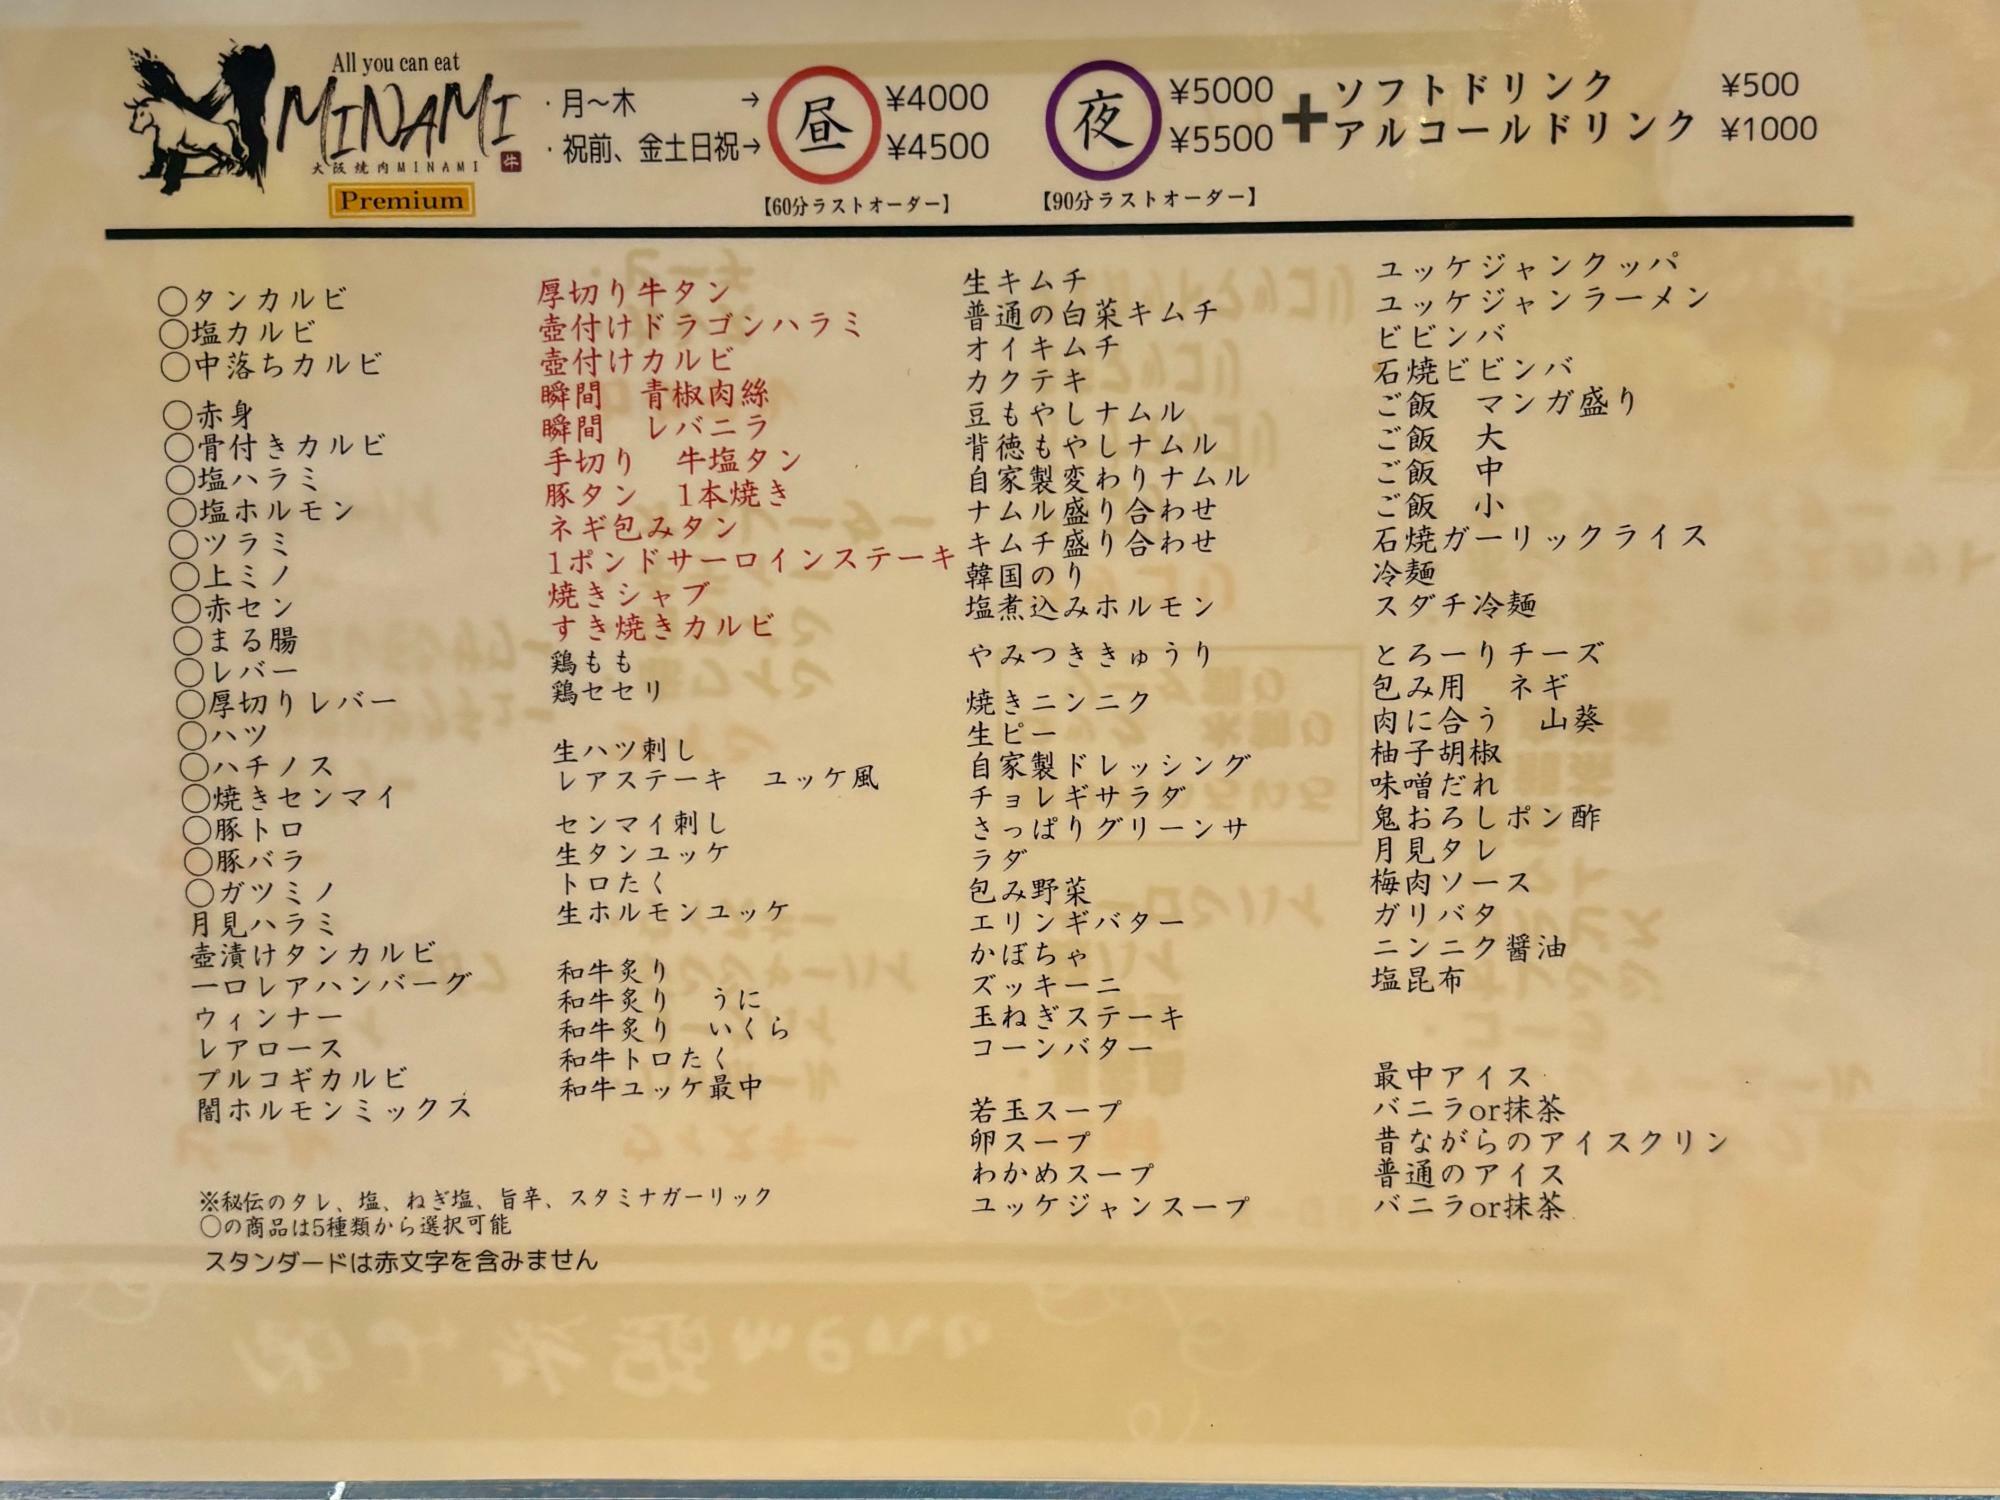 All you can eat
MINAMI
大阪焼肉MINAMI 牛
Premium
・月〜木 → 昼 ¥4000 夜 ¥5000 + ソフトドリンク ¥500
・祝前、金土日祝→ ¥4500 ¥5500 アルコールドリンク ¥1000
【60分ラストオーダー】 【90分ラストオーダー】
○タンカルビ
○塩カルビ
○中落ちカルビ
○赤身
○骨付きカルビ
○塩ハラミ
○塩ホルモン
○ツラミ
○上ミノ
○赤セン
○まる腸
○レバー
○厚切りレバー
○ハツ
○ハチノス
○焼きセンマイ
○豚トロ
○豚バラ
○ガツミノ
月見ハラミ
壺漬けタンカルビ
一口レアハンバーグ
ウィンナー
レアロース
プルコギカルビ
闇ホルモンミックス
厚切り牛タン
壺付けドラゴンハラミ
壺付けカルビ
瞬間 青椒肉絲
瞬間 レバニラ
手切り 牛塩タン
豚タン 1本焼き
ネギ包みタン
1ポンドサーロインステーキ
焼きシャブ
すき焼きカルビ
鶏もも
鶏セセリ
生ハツ刺し
レアステーキ ユッケ風
センマイ刺し
生タンユッケ
トロたく
生ホルモンユッケ
和牛炙り
和牛炙り うに
和牛炙り いくら
和牛トロたく
和牛ユッケ最中
生キムチ
普通の白菜キムチ
オイキムチ
カクテキ
豆もやしナムル
背徳もやしナムル
自家製変わりナムル
ナムル盛り合わせ
キムチ盛り合わせ
韓国のり
塩煮込みホルモン
やみつききゅうり
焼きニンニク
生ピー
自家製ドレッシング
チョレギサラダ
さっぱりグリーンサ
ラダ
包み野菜
エリンギバター
かぼちゃ
ズッキーニ
玉ねぎステーキ
コーンバター
若玉スープ
卵スープ
わかめスープ
ユッケジャンスープ
ユッケジャンクッパ
ユッケジャンラーメン
ビビンバ
石焼ビビンバ
ご飯 マンガ盛り
ご飯 大
ご飯 中
ご飯 小
石焼ガーリックライス
冷麺
スダチ冷麺
とろーりチーズ
包み用 ネギ
肉に合う 山葵
柚子胡椒
味噌だれ
鬼おろしポン酢
月見タレ
梅肉ソース
ガリバタ
ニンニク醤油
塩昆布
最中アイス
バニラor抹茶
昔ながらのアイスクリン
普通のアイス
バニラor抹茶
※秘伝のタレ、塩、ねぎ塩、旨辛、スタミナガーリック
○の商品は5種類から選択可能
スタンダードは赤文字を含みません